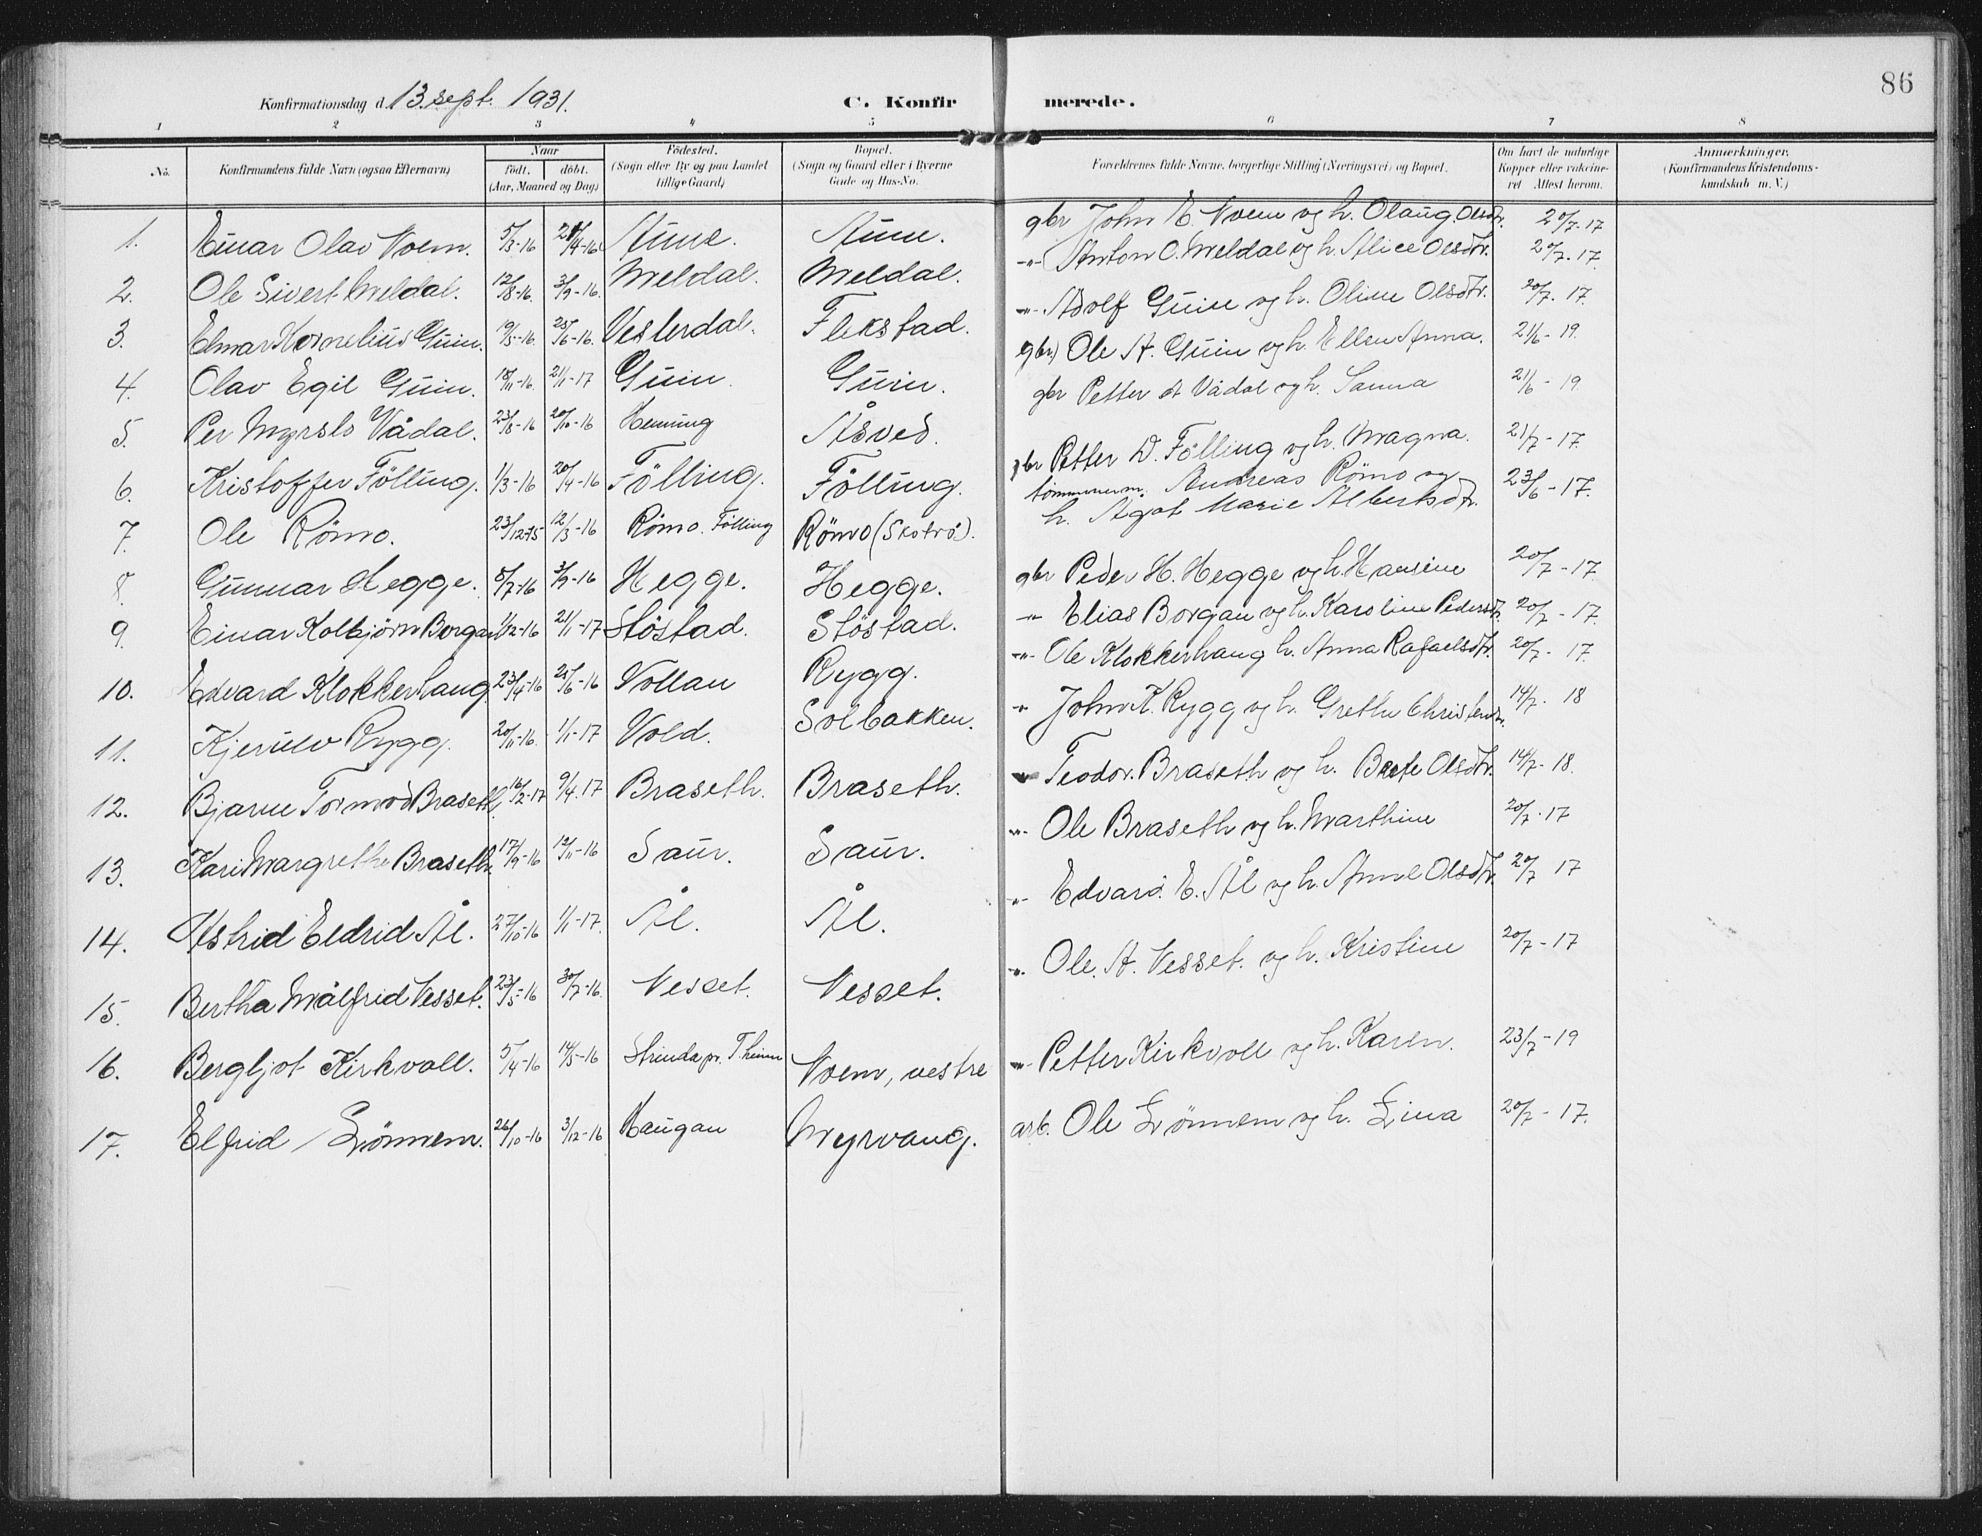 86
Konfirmationsdag d. 13. sept. 1931. C. Konfir merede.
1 2 3 4 5 6 7 8
No. Konfirmandens fulde Navn (ogsaa Efternavn) Naar født. døbt. (Aar, Maaned og Dag) Fødested. (Sogn eller By og paa Landet tillige Gaard) Bopæl. (Sogn og Gaard eller i Byerne Gade og Hus-No. Forældrenes fulde Navne, borgerlige Stilling (Næringsvei) og Bopæl. Om havt de naturlige Kopper eller vaksineret Attest herom. Anmerkninger. (Konfirmandens Kristendomskundskab m. V.)
1. Einar Olav Noem. 5/3-16 24/4-16 Aune. Aune. gbr John E Noem og h. Olaug Olsdtr. 20/7-17
2. Ole Sivert Meldal. 12/8-16. 3/9-16. Meldal. Meldal. -"- Anton O. Meldal og h. Alice Olsdtr. 20/7-17.
3. Elmar Kornelius Guin. 19/5-16. 25/6-16. Vesterdal. Flekstad. -"- Adolf Guin og h. Oline Olsdtr. 20/7-17.
4. Olav Egil Guin. 18/11-16. 21/1-17 Guin. Guin. gbr) Ole A. Guin og h. Ellen Anna. 21/6-19.
5. Per Myrslo Vådal. 23/8-16 20/10-16 Henning Åsved. gbr Petter A Vådal og h. Sanna 21/6-19
6. Kristoffer Fölling. 1/3-16 20/4-16 Fölling. Fölling. gbr Petter D. Fölling og h. Magna. 21/7-17.
7. Ole Römo. 23/12-15 12/3-16 Römo. Fölling Römo (Skotrö). tömmerm. Andreas Römo og h. Agot Marie Albertsdtr. 23/6-17.
8. Gunnar Hegge. 8/7-16 3/9-16 Hegge. Hegge. gbr Peder H. Hegge og h. Hansine 20/7-17
9. Einar Kolbjörn Borgan 1/12-16 21/1-17 Stöstad. Stöstad. -"- Elias Borgan og h. Karoline Pedersdtr. 20/7-17.
10. Edvard Klokkerhaug. 23/4-16 25/6-16 Vollan Rygg. -"- Ole Klokkerhaug h. Anna Rafaelsdtr. 20/7-17.
11. Kjerulv Rygg. 20/11-16. 1/1-17 Vold. Solbakken. " John K. Rygg og h. Grethe Christensdtr. 14/7-18
12. Bjarne Tormod Braseth. 16/2-17 9/4.17 Braseth. Braseth. " Teodor. Braseth og h. Berte Olsdtr. 14/7-18.
13. Kari Margrethe Braseth. 17/9-16 12/11-16 Saur. Saur. -"- Ole Braseth og h. Marthine 20/7-17
14. Astrid Eldrid Ål. 27/10-16 1/1-17. Ål. Ål. -"- Edvard. E. Ål og h. Anne Olsdtr. 20/7 17
15. Bertha Målfrid Vesset. 23/5-16 30/7-16. Vesset. Vesset. -"- Ole. A. Vesset. og h. Kristine 20/7-17
16. Bergljot Kirkvoll. 5/4-16 14/5-16 Strinda pr. T.heim Noem, vestre -"- Petter Kirkvoll og h. Karen. 23/7-19
17. Elfrid Lönnem. 26/10-16 3/12-16 Haugan Myrvang. arb. Ole Lönnem og h. Lina 20/7-17.